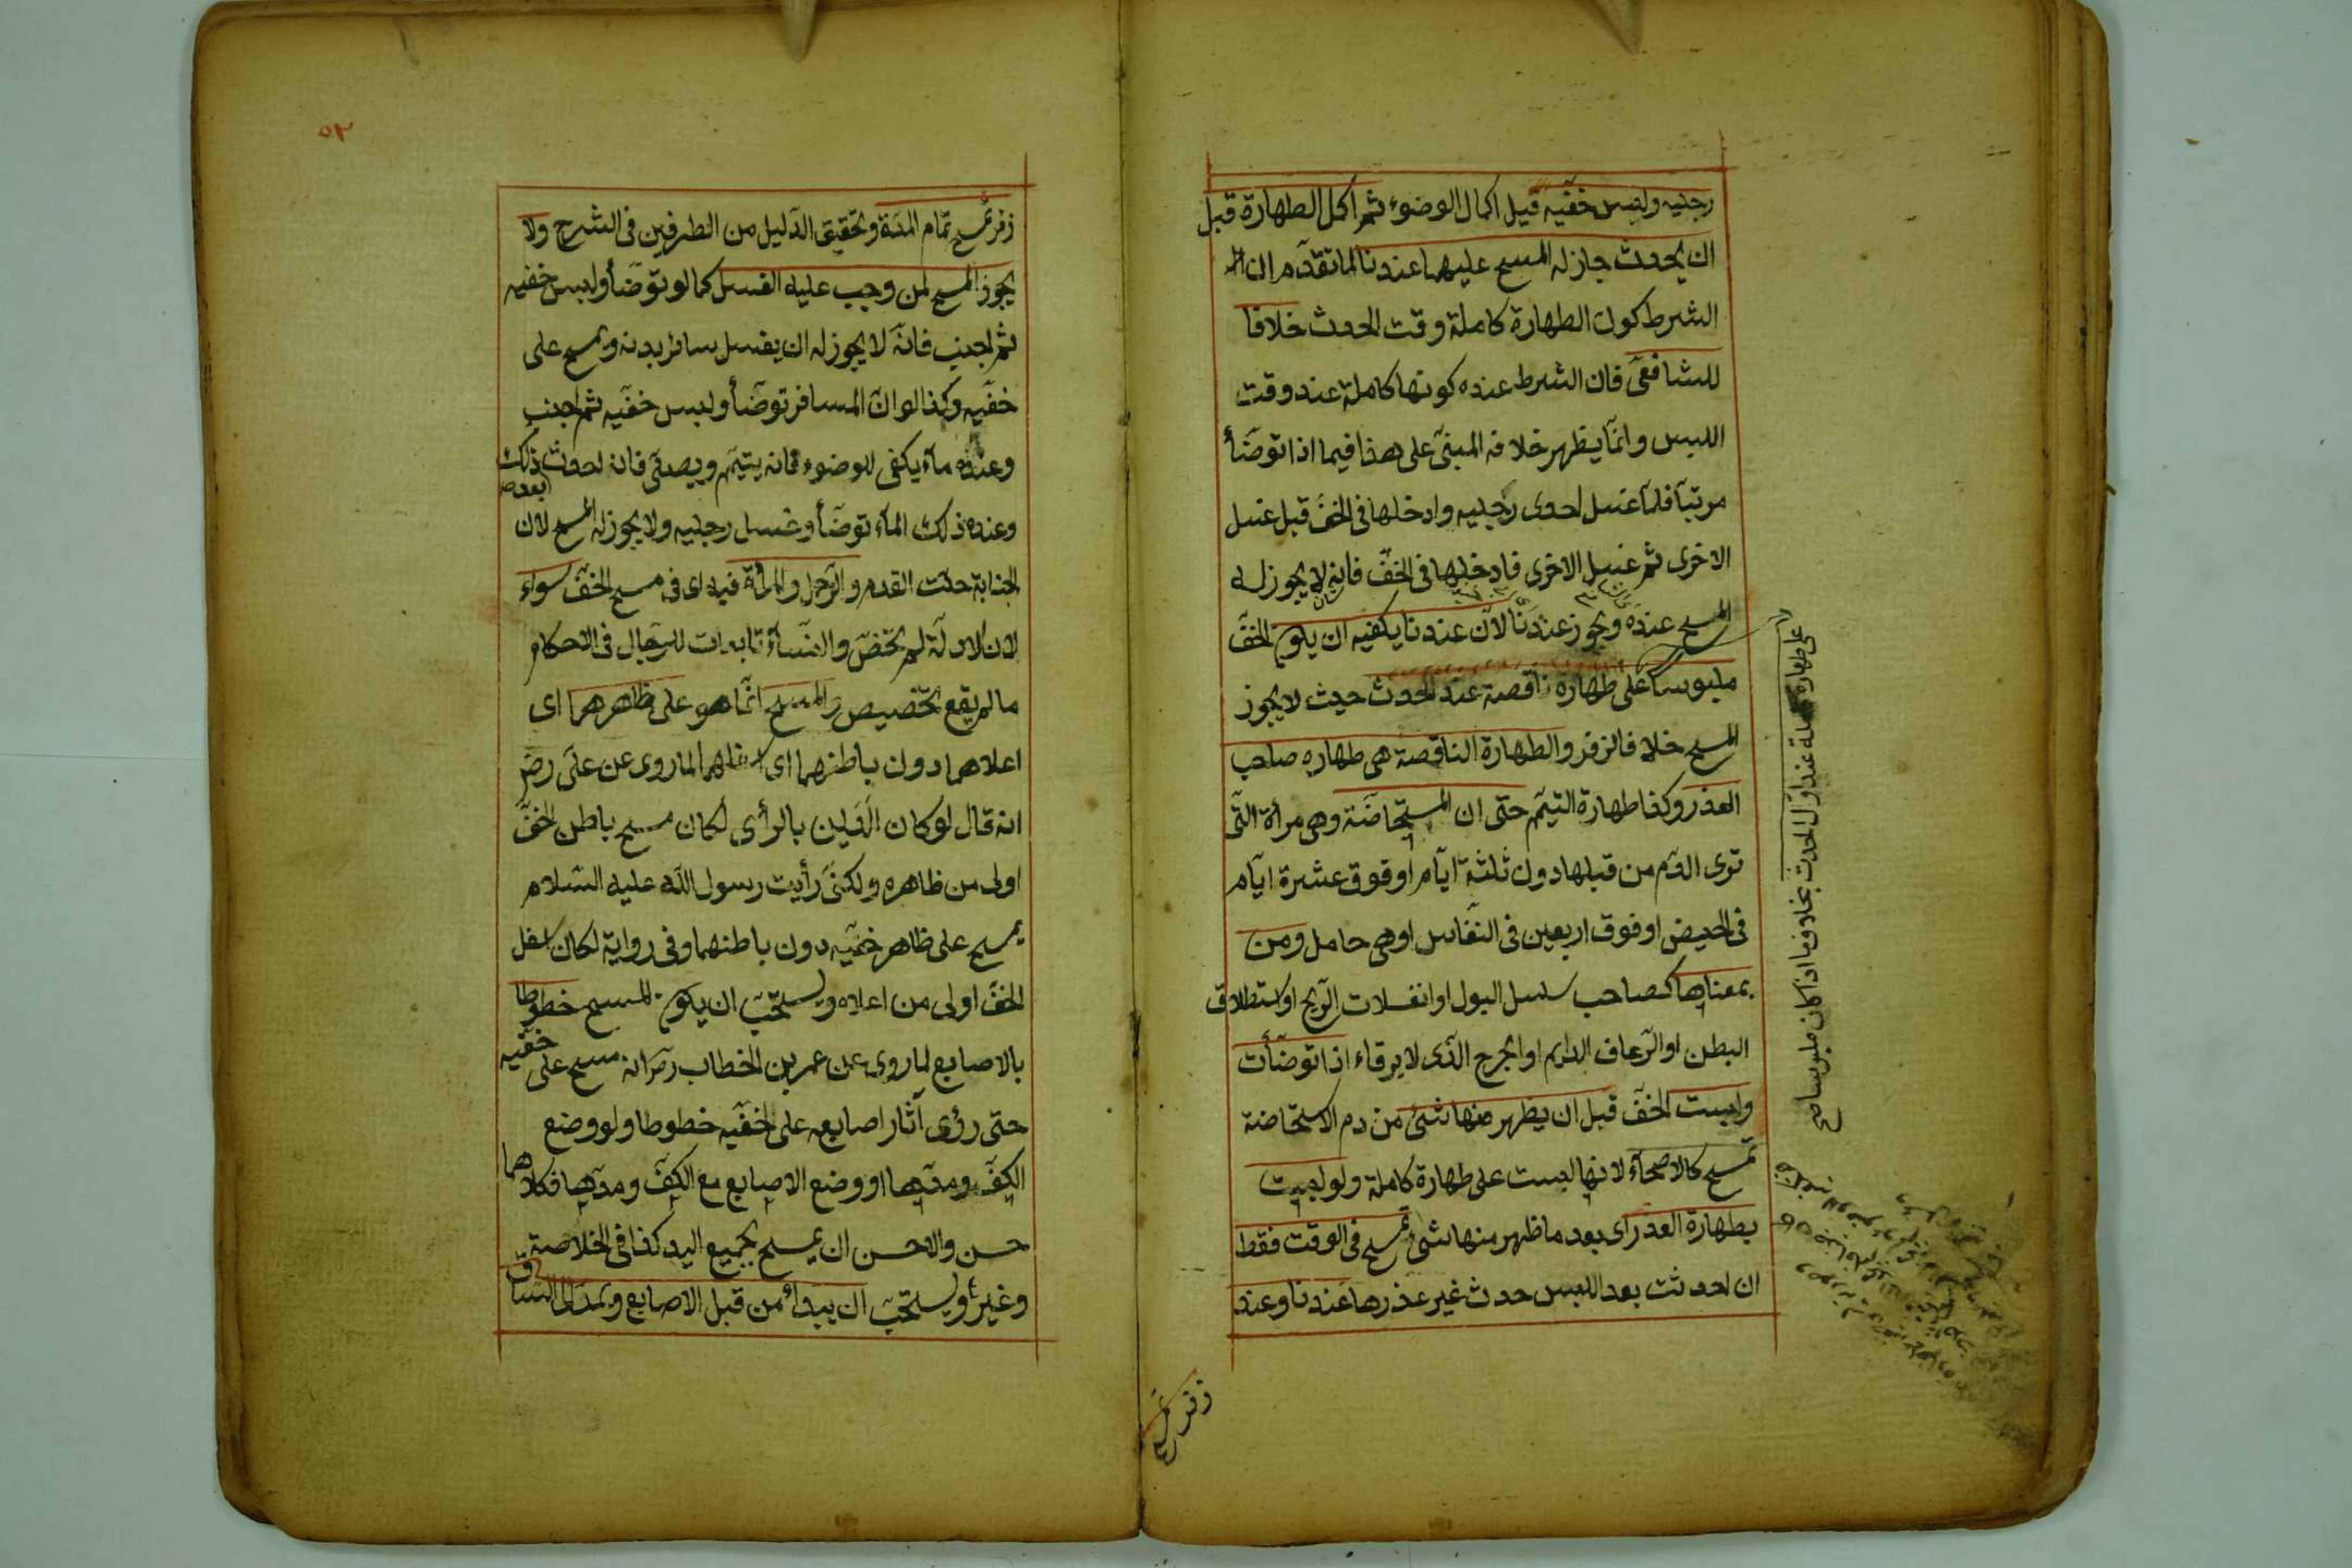 رجليه ولبس خفّيه قبل اكمال الوضوء ثم اكمل الطهارة قبل
ان يحدث جاز له المسح عليهما عندنا لما تقدّم ان
الشرط كون الطهارة كاملة وقت الحدث خلافا
للشافعىّ فان الشرط عنده كونها كاملة عند وقت
اللبس وانّما يظهر خلافه المبنىّ على هذا فيما اذا توضّأ
مرتبا فلمّا غسل احدى رجليه وادخلها فى الخفّ قبل غسل
الاخرى ثم غسل الاخرى فادخلها فى الخفّ فانه لا يجوز له
المسح عنده ويجوز عندنا لانّ عندنا يكفيه ان يكون الخفّ
ملبوسا على طهارة ناقصة عند الحدث حيث لا يجوز
المسح خلافا لزفر والطهارة الناقصة هى طهاره صاحب
العذر وكذا طهارة التيمّم حتى ان المستحاضة وهى مرأة التى
ترى الدّم من قبلها دون ثلثة ايّام او فوق عشرة ايّام
فى الحيض او فوق اربعين فى النفاس او هى حامل ومن
بمعناها كصاحب سلسل البول او انفلات الرّيح او استطلاق
البطن او الرّعاف الدايم او الجرح الذى لا يرقاء اذا توضّأت
ولبست الخفّ قبل ان يظهر منها شئ من دم الاستحاضة
تمسح كالاصحّاء لانها لبست على طهارة كاملة ولو لبست
بطهارة العذر اى بعد ما ظهر منها شئ تمسح فى الوقت فقط
ان احدثت بعد اللبس حدث غير عذرها عندنا وعند
زفر تمسح
على طهارة كاملة عند اوّل الحدث بخلاف ما اذا كان ملبوسا
٥٢
زفر تمسح تمام المدّة وتحقيق الدّليل من الطرفين فى الشرح ولا
يجوز المسح لمن وجب عليه الغسل كما لو توضّأ ولبس خفيه
ثم اجنب فانّه لا يجوز له ان يغسل سائر بدنه ويمسح على
خفّيه وكذا لو انّ المسافر توضّأ ولبس خفّيه ثم اجنب
وعنده ماء يكفى للوضوء فانه يتيمّم ويصلّى فان احدث بعد ذلك
وعنده ذلك الماء توضّأ وغسل رجليه ولا يجوز له المسح لان
الجنابة حلّت القدم والرّجل والمرأة فيه اى فى مسح الخفّ سواء
لان الادلّة لم تختصّ والنّساء تابعات للرّجال فى الاحكام
ما لم يقع تخصيص والمسح انّما هو على ظاهرهما اى
اعلاهما دون باطنهما اى اسفلهما لما روى عن علىّ رضى
انه قال لو كان الدّين بالرأى لكان مسح باطن الخفّ
اولى من ظاهره ولكنّى رأيت رسول اللّه عليه السّلام
يمسح على ظاهر خفّيه دون باطنهما وفى رواية لكان اسفل
الخفّ اولى من اعلاه ويستحبّ ان يكون المسح خطوطا
بالاصابع لما روى عن عمر بن الخطاب رضى انه مسح على خفّيه
حتى رؤى آثار اصابعه على الخفّيه خطوطا ولو وضع
الكفّ ومدّها او وضع الاصابع مع الكفّ ومدّها فكلاهما
حسن والاحسن ان يمسح بجميع اليد كذا فى الخلاصة
وغيره ويستحبّ ان يبدأ من قبل الاصابع ويمدّ الى السّاق